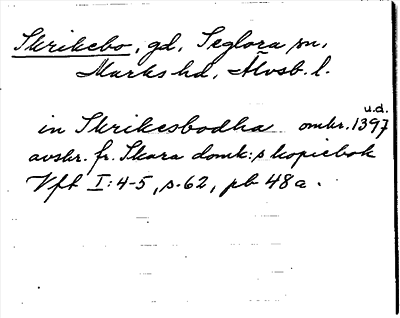 Skrikebo, gd, Seglora sn,
Marks hd, Älvsb. l.
u.d.
in Skrikesbodha omkr. 1397
avskr. fr. Skara domk:s kopiebok
Vft I:4-5, s. 62, pb 48a.